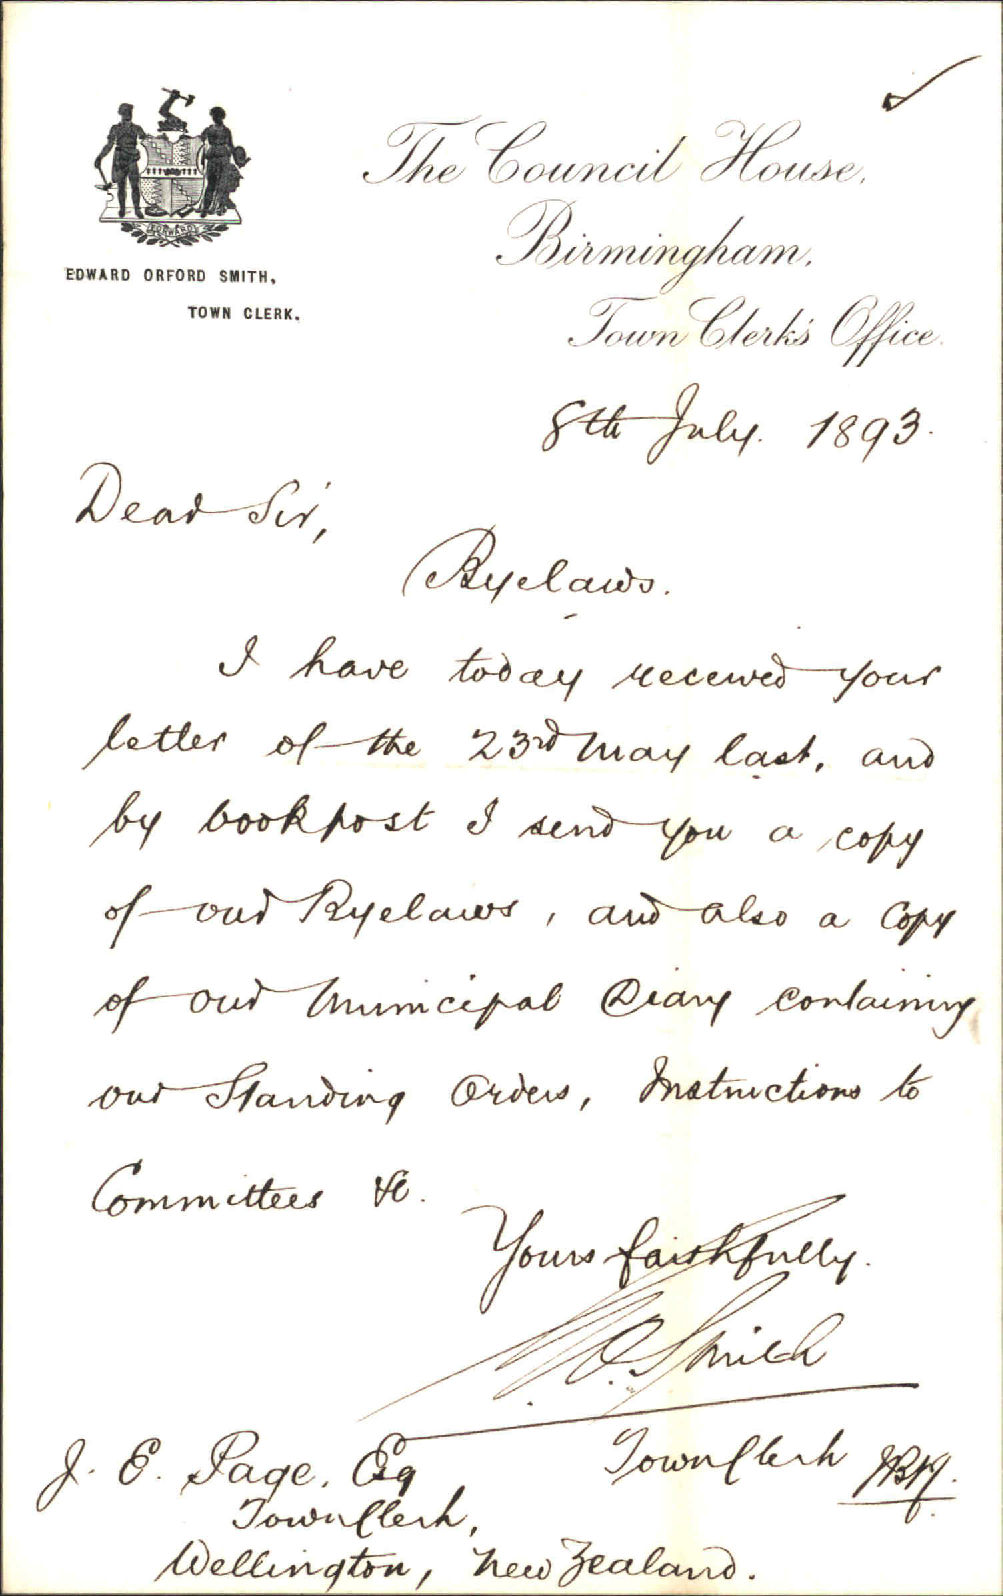 FORWARD
EDWARD ORFORD SMITH,
TOWN CLERK.
The Council House,
Birmingham.
Town Clerk's Office.
8th July. 1893.
Dear Sir,
Byelaws.
I have today received your
letter of the 23rd May last, and
by bookpost I send you a copy
of our Byelaws, and also a Copy
of our Municipal Diary containing
our Standing Orders, Instructions to
Committees &c.
Yours faithfully.
O. Smith
Town Clerk
J. E. Page, Esq
Town Clerk,
Wellington, New Zealand.